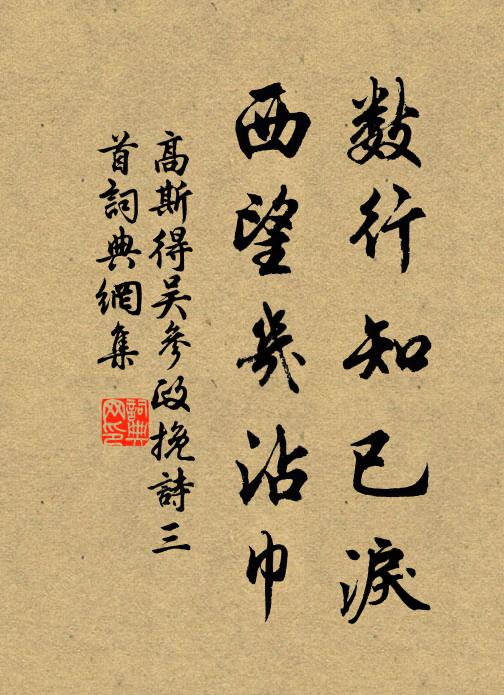 數行知已淚
西望幾沾巾
高斯得吳參政挽詩三
首詞典網集
詞典
网印